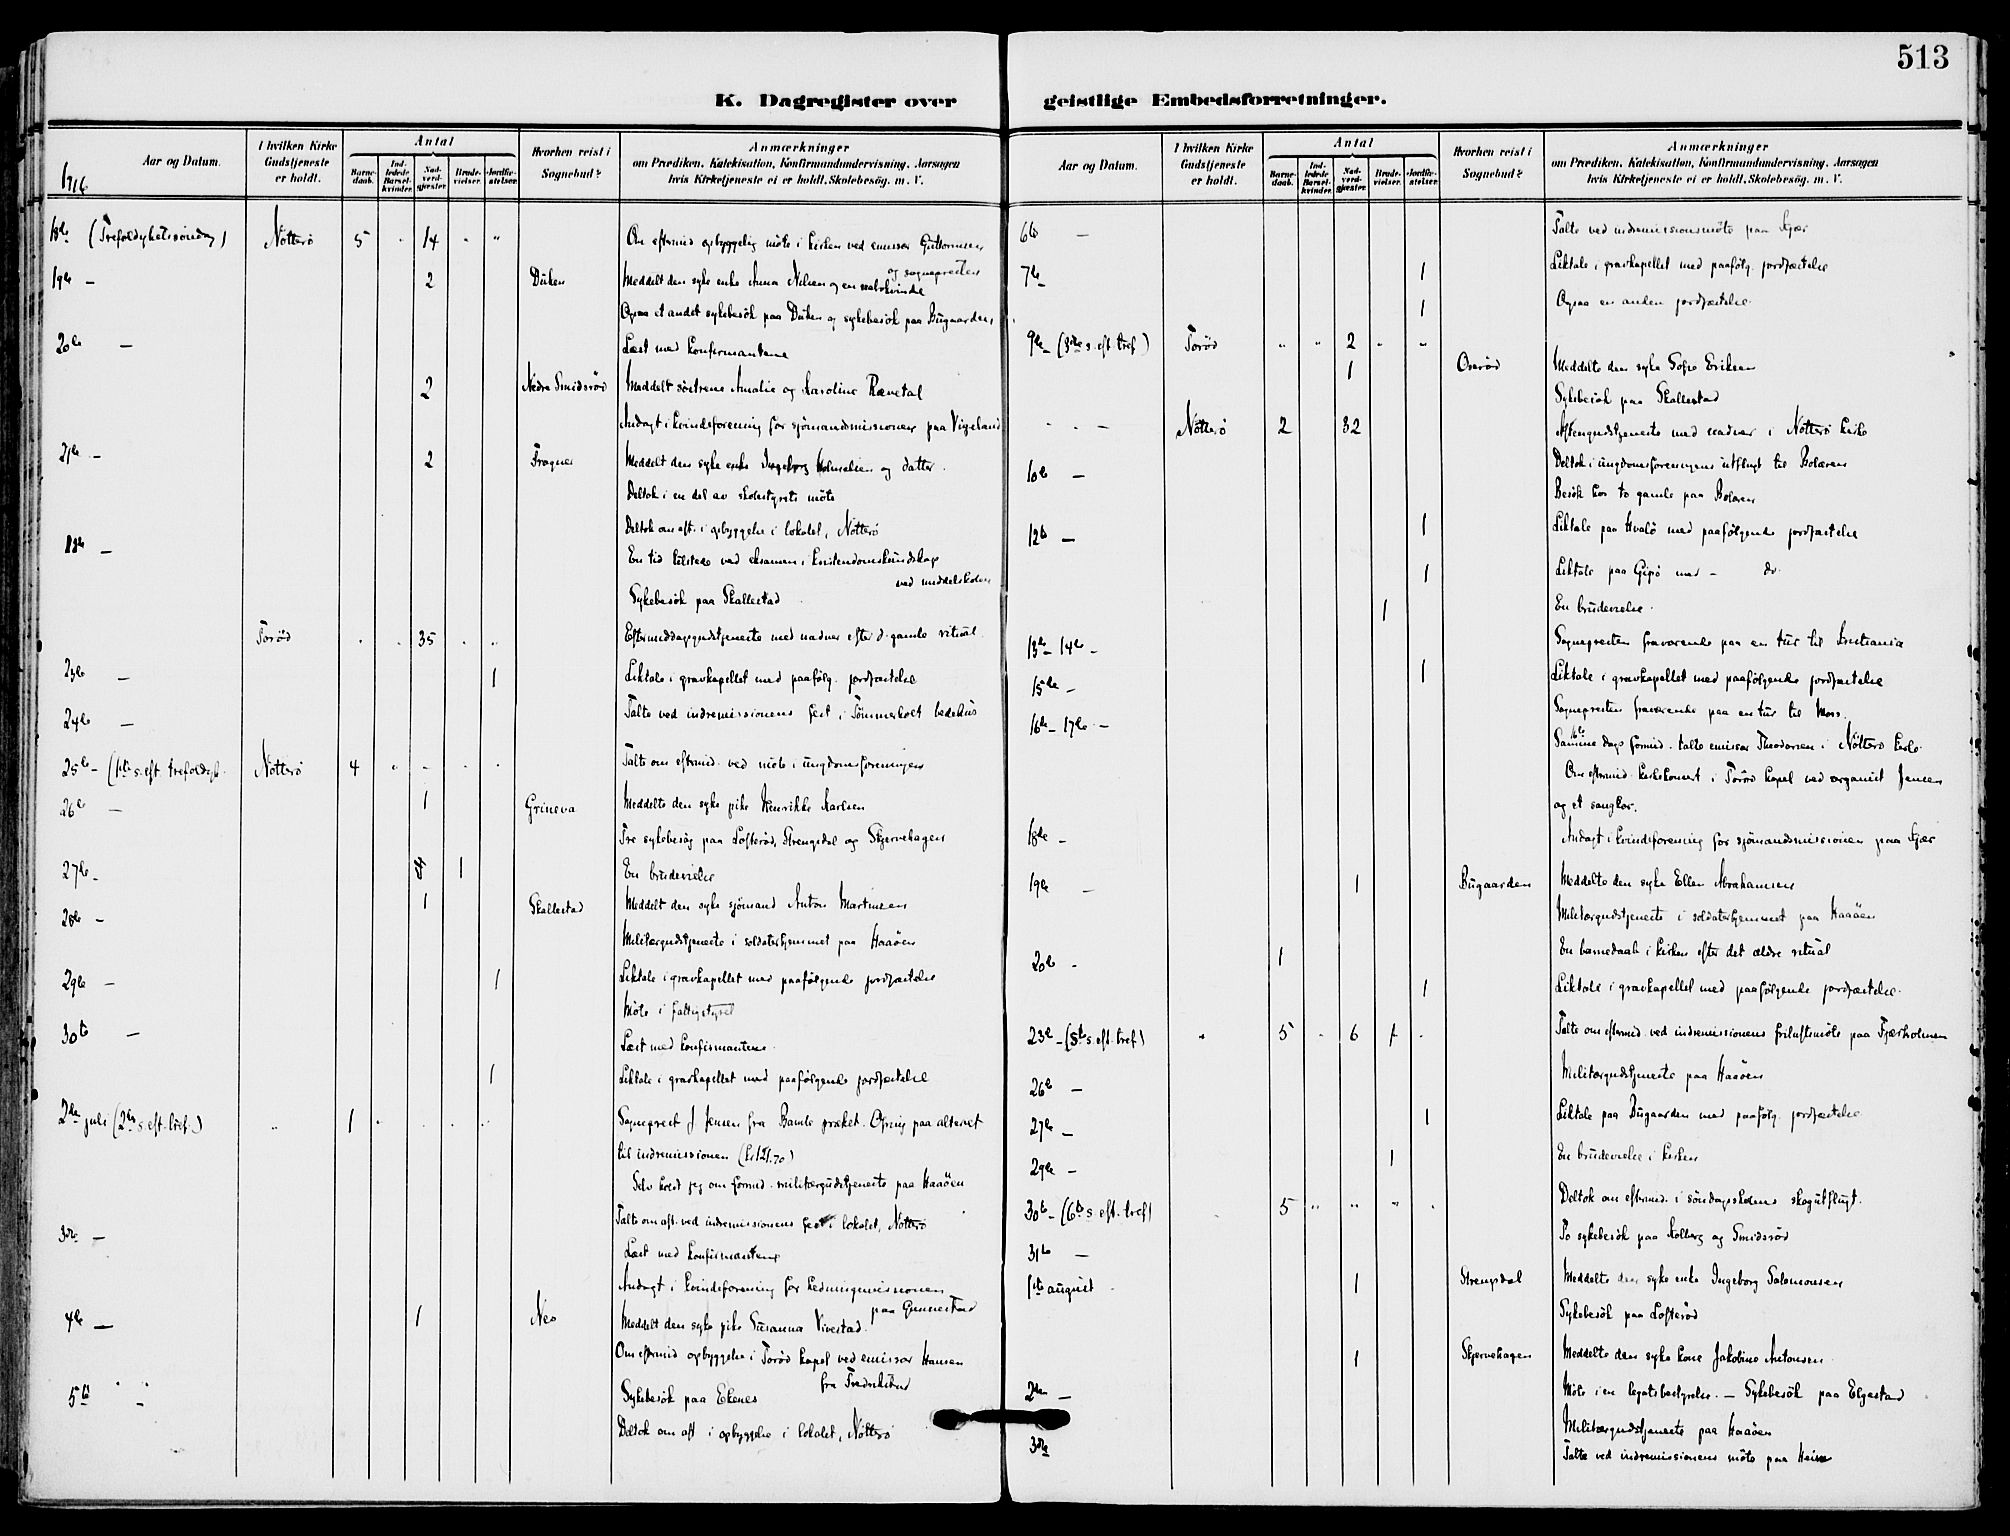 513
K. Dagregister over geistlige Embedsforretninger.
Aar og Datum.
I hvilken Kirke Gudstjeneste er holdt.
Antal
Barne-daab.
Ind-ledede Barsel-kvinder.
Nad-verd-gjester.
Brude-vielser.
Jordfæ-stelser.
Hvorhen reist i Sognebud?
Anmærkninger
om Prædiken, Katekisation, Konfirmandundervisning, Aarsagen
hvis Kirketjeneste ei er holdt, Skolebesøg, m. V.
1916
18de (Trefoldighetssøndag) Nøtterø 5 " 14 " " Om eftermid opbyggelig møte i kirken ved emissær Guttormsen
og sognepresten
19de — 2 Duken Meddelt den syke enke Anna Nilsen og en nabokvinde
Ogsaa et andet sykebesøk paa Duken og sykebesøk paa Bugaarden
20de — Læst med konfirmantene
2 Nedre Smidsrød Meddelt søstrene Amalie og Karoline Rævetal
Andagt i kvindeforening for sjømandsmissionen paa Vigeland
21de — 2 Tragnes Meddelt den syke enke Ingeborg Holmelien og datter.
Deltok i en del av skolestyrets møte
Deltok om aft. i opbyggelse i lokalet, Nøtterø
— En tid tilstede ved eksamen i kristendomskundskap
ved middelskolen
Sykebesøk paa Skallestad
Torød " " 35 " " Eftermiddagsgudstjeneste med nadver efter d. gamle ritual
23de — 1 Liktale i gravkapellet med paafølg. jordfæstelse
24de — Talte ved indremissionens fest i Tømmerholt bedehus
25de — (1ste s. eft. trefoldigh. Nøtterø 4 " — " " Talte om eftermid. ved møte i ungdomsforeningen
26de — 1 Grineva Meddelte den syke pike Henrikke Karlsen
Tre sykebesøg paa Lofterød, Strengsdal og Skjervehagen
27de — 1 En brudevielse
28de — 1 Skallestad Meddelt den syke sjømand Anton Martinsen
Militærgudstjeneste i soldaterhjemmet paa Haaøen
29de — 1 Liktale i gravkapellet med paafølgende jordfæstelse
Møte i fattigstyret
30te — Læst med konfirmantene
1 Liktale i gravkapellet med paafølgende jordfæstelse
2den juli (2den s. eft. tref.) " 1 " " " " Sogneprest J Jensen fra Bamle præket. Ofring paa alteret
til indremissionen (kr 121.70)
Selv holdt jeg om formid. militærgudstjeneste paa Haaøen
Talte om aft. ved indremissionens fest i lokalet, Nøtterø
3die — Læst med konfirmantene
Andagt i kvindeforening for hedningemissionen
paa Gunnestad
4de — 1 Nes Meddelt den syke pike Susanna Vivestad.
Om eftermid opbyggelse i Torød kapel ved emissær Hansen
fra Fredrikstad
5te — Sykebesøk paa Ekenes
Deltok om aft i opbyggelse i lokalet, Nøtterø
6te — Talte ved indremissionsmøte paa Kjær
7de — 1 Liktale i gravkapellet med paafølg. jordfæstelse
1 Ogsaa en anden jordfæstelse
9de — (3die s. eft tref) Torød " " 2 " "
1 Oserød Meddelte den syke Sofie Eriksen
Sykebesøk paa Skallestad
" " — Nøtterø 2 32 Aftengudstjeneste med nadver i Nøtterø kirke
10de — Deltok i ungdomsforeningens utflugt til Bolæren
Besøk hos to gamle paa Bolæren
12te — 1 Liktale paa Hvalø med paafølgende jordfæstelse
1 Liktale paa Gipø med — do.
1 En brudevielse.
13de — 14de — Sognepresten fraværende paa en tur til Kristiania
15de — 1 Liktale i gravkapellet med paafølgende jordfæstelse
16de — 17de — Sognepresten fraværende paa en tur til Moss.
16de
Samme dags formid. talte emissær Theodorsen i Nøtterø kirke.
Om eftermid kirkekonsert i Torød kapel ved organist Jensen
og et sangkor.
18de — Andagt i kvindeforening for sjømandsmissionen paa Kjær
19de — 1 Bugaarden Meddelte den syke Ellen Abrahamsen
Militærgudstjeneste i soldaterhjemmet paa Haaøen
20de — 1 En barnedaab i kirken efter det ældre ritual
1 Liktale i gravkapellet med paafølgende jordfæstelse.
23de — (5te s. eft. tref.) " 5 " 6 1 " Talte om eftermid. ved indremissionens friluftsmøte paa Fjærholmen
26de — Militærgudstjeneste paa Haaøen
27de — 1 Liktale paa Bugaarden med paafølg. jordfæstelse
29de — 1 En brudevielse i kirken
Deltok om eftermid. i søndagsskolens skogutflugt.
30te — (6te s. eft. tref) " 5 " " " "
To sykebesøk paa Kolberg og Smidsrød
31te —
1ste august 1 Strengsdal Meddelte den syke enke Ingeborg Salomonsen
Sykebesøk paa Lofterød
1 Skjervehagen Meddelte den syke kone Jakobine Antonsen
2den — Møte i en legatbestyrelse. — Sykebesøk paa Elgestad
Militærgudstjeneste paa Haaøen
3die Talte ved indremissionens møte paa Heim